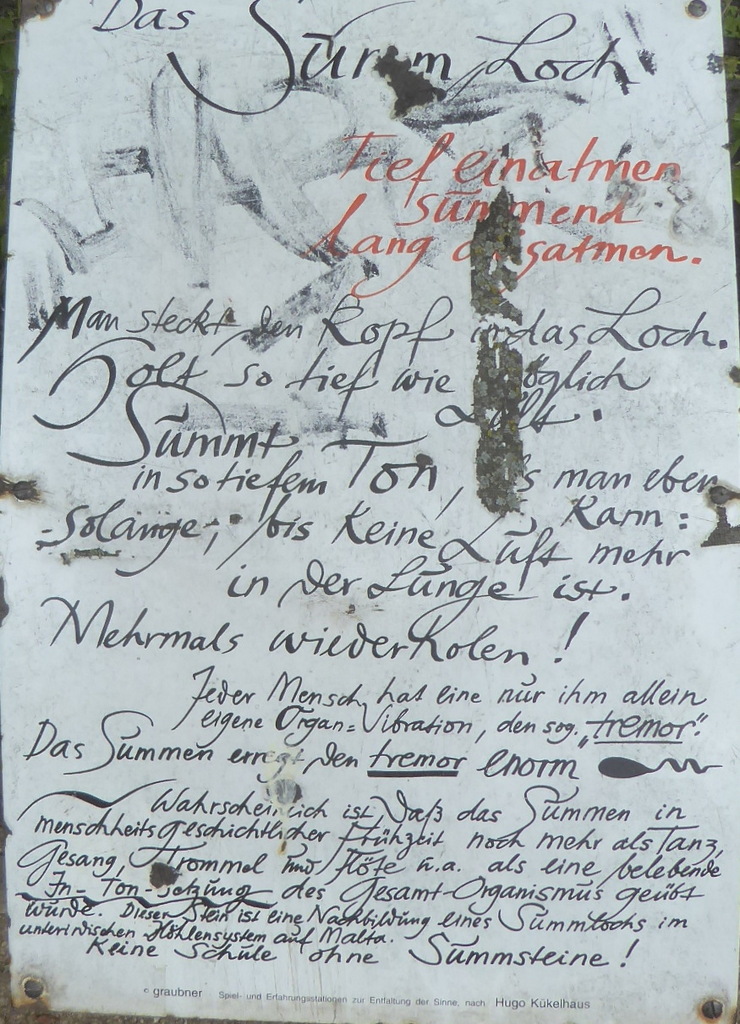 Das Summ Loch
Tief einatmen
summend
lang ausatmen.
Man steckt den Kopf in das Loch.
Holt so tief wie möglich
Luft.
Summt
in so tiefem Ton, als man eben
kann:
-solange, bis keine Luft mehr
in der Lunge ist.
Mehrmals wiederholen!
Jeder Mensch hat eine nur ihm allein
eigene Organ=Vibration, den sog. "tremor".
Das Summen erregt den tremor enorm
Wahrscheinlich ist, daß das Summen in
menschheitsgeschichtlicher Frühzeit noch mehr als Tanz,
Gesang, Trommel und Flöte u.a. als eine belebende
In-Ton-Setzung des Gesamt-Organismus geübt
wurde. Dieser Stein ist eine Nachbildung eines Summlochs im
unterirdischen Höhlensystem auf Malta.
Keine Schule ohne Summsteine!
© graubner Spiel- und Erfahrungsstationen zur Entfaltung der Sinne, nach Hugo Kükelhaus